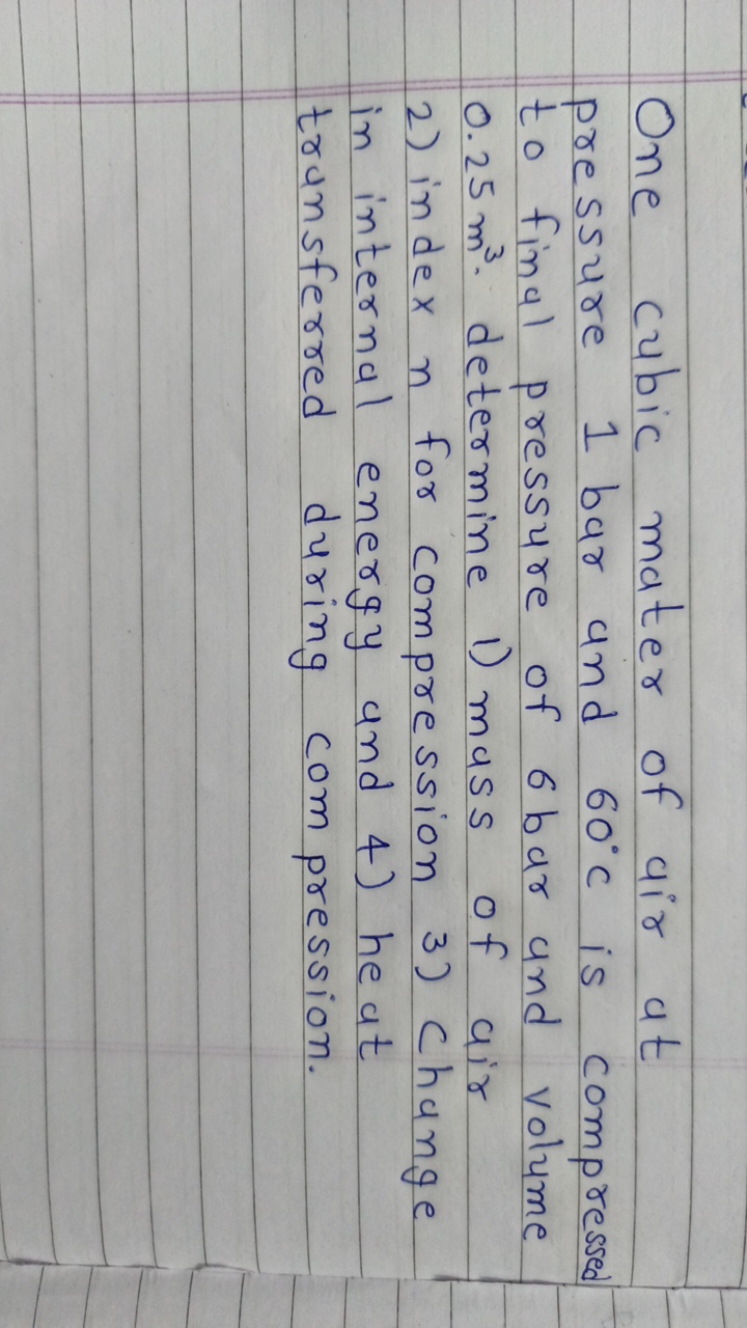 One cubic mater of air at
pressure 1 bar and 60°c is compressed
to final pressure of 6 bar and volume
0.25 m³. determine 1) mass of air
2) index n for compression 3) Change
in internal energy and 4) heat
transferred during compression.